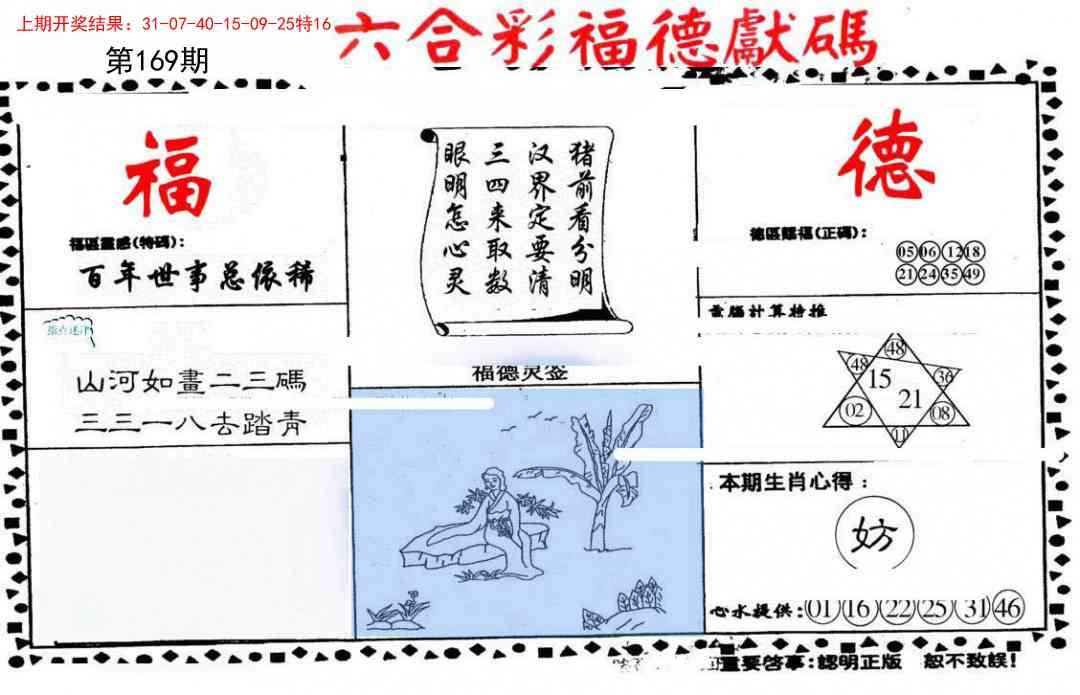 上期开奖结果：31-07-40-15-09-25特16
第169期
六合彩福德獻碼
福
福區靈感(特碼)：
百年世事总依稀
山河如畫二三碼
三三一八去踏青
猪前看分明
汉界定要清
三四来取数
眼明怎心灵
福德灵签
德
德區賜福(正碼)：
05 06 12 18
21 24 35 49
電腦計算特推
48
48 15 36
21
02 08
11
本期生肖心得：
妨
心水提供：01 16 22 25 31 46
重要啓事：認明正版 恕不致誤！